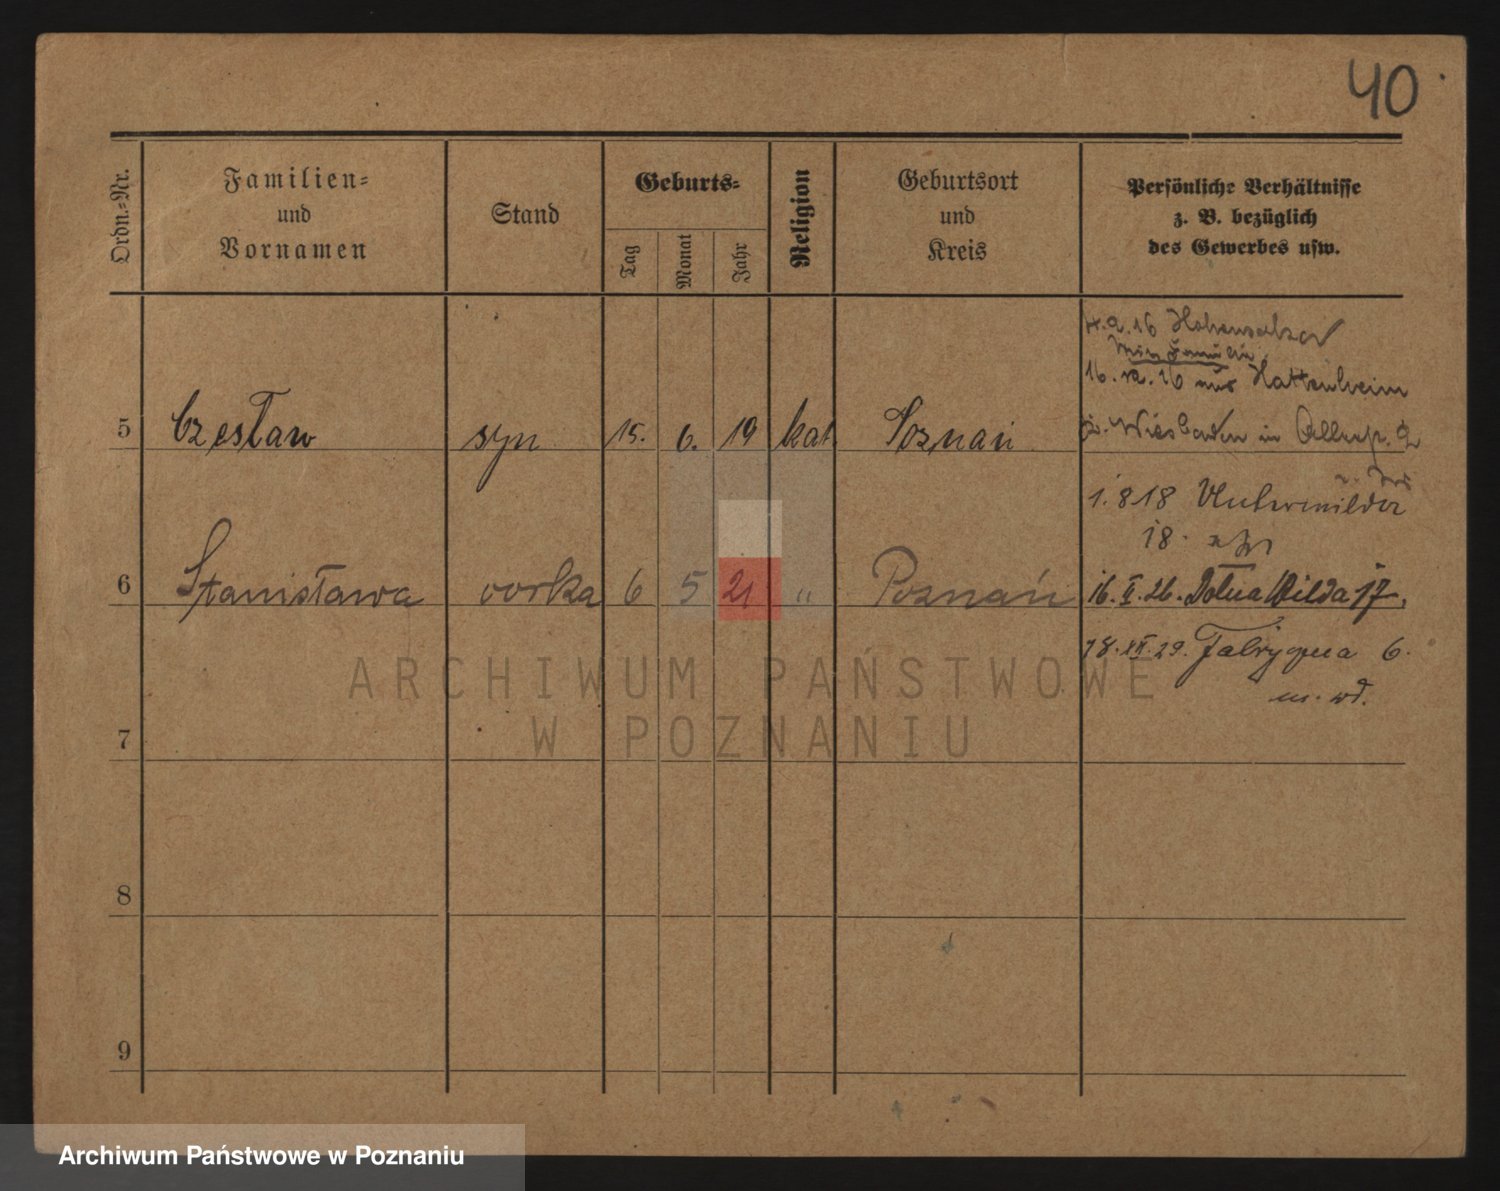 40
Ordn.-Nr.
Familien-
und
Vornamen
Stand
Geburts-
Tag
Monat
Jahr
Religion
Geburtsort
und
Kreis
Persönliche Verhältnisse
z. B. bezüglich
des Gewerbes usw.
16 Hohensalza
5 Czesław syn 15. 6. 19 kat Poznań
16. 16 aus Hattenheim
Wiesbaden in
1. 8 18 Unterwilda
18.
6 Stanisława córka 6 5 21 " Poznań
16. II. 26. Dolna Wilda 17.
18. XII. 29. Fabryczna 6.
7
8
9
ARCHIWUM PAŃSTWOWE
W POZNANIU
Archiwum Państwowe w Poznaniu